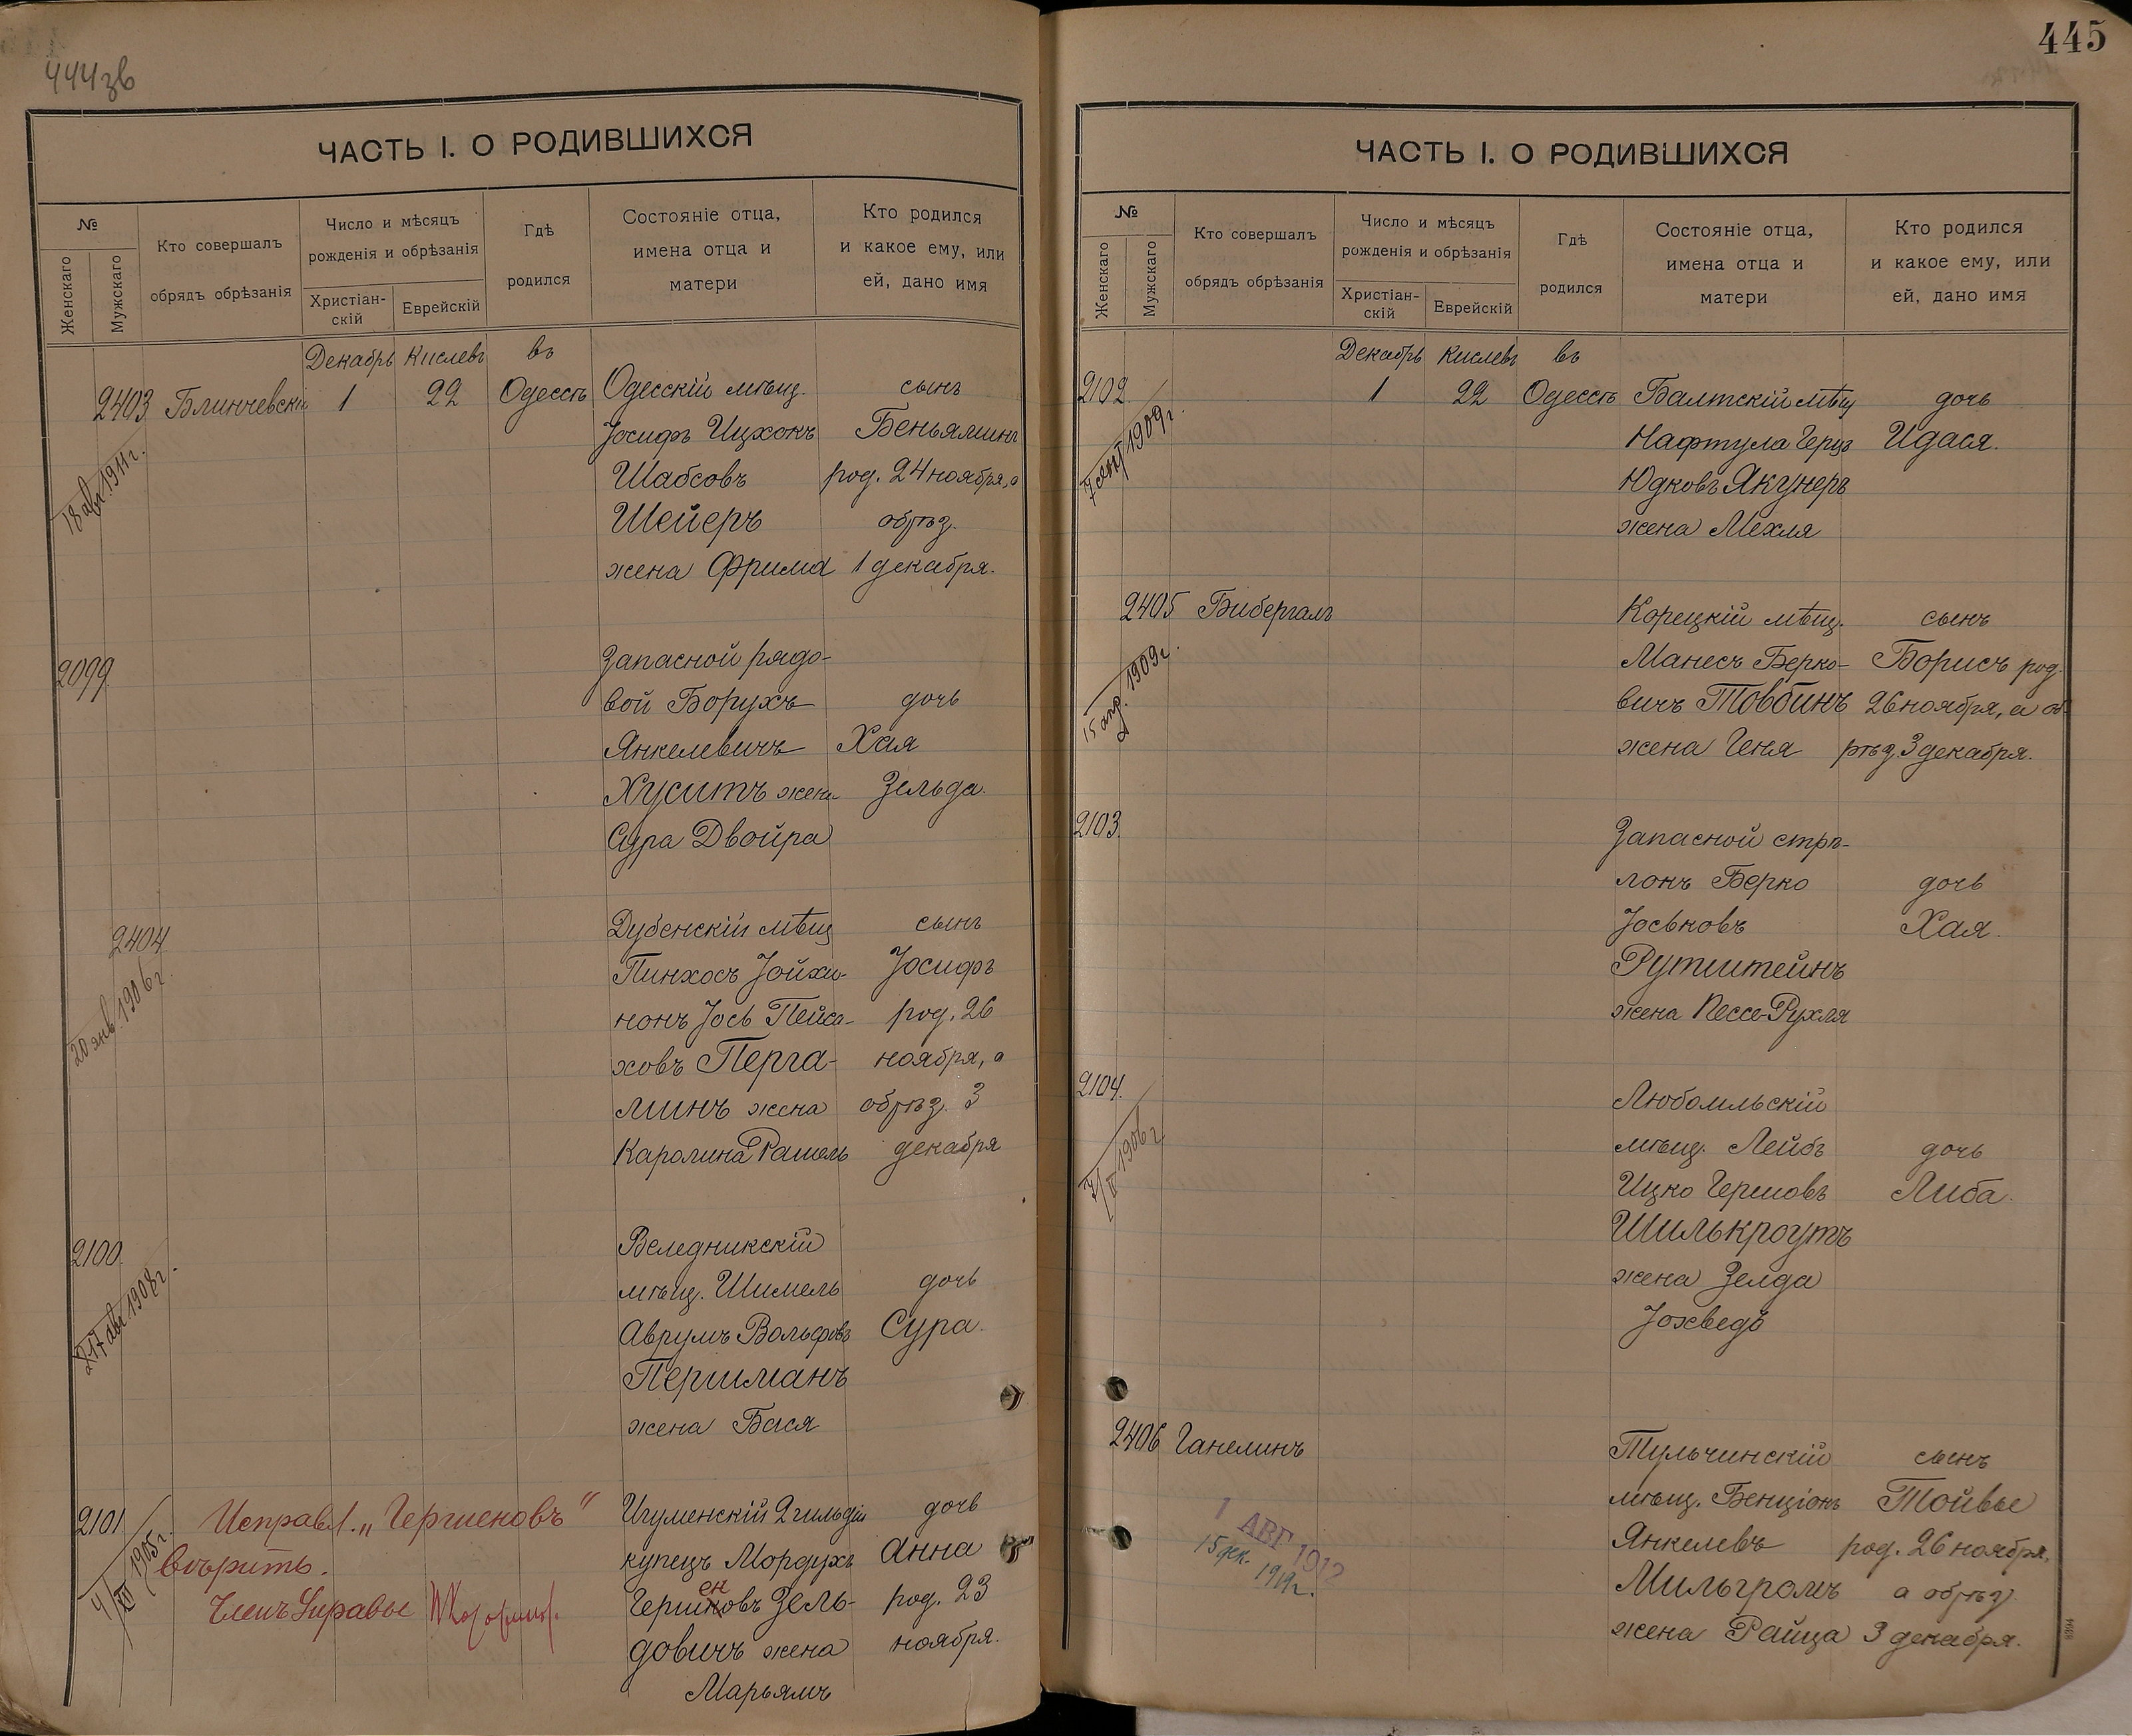 444зв
ЧАСТЬ I. О РОДИВШИХСЯ
№
Женскаго
Мужскаго
Кто совершалъ
обрядъ обрѣзанія
Число и мѣсяцъ
рожденія и обрѣзанія
Христіан-
скій
Еврейскій
Гдѣ
родился
Состояніе отца,
имена отца и
матери
Кто родился
и какое ему, или
ей, дано имя
Декабрь Кислевъ въ
2403 Блинчевскій 1 22 Одессѣ Одесскій мѣщ. сынъ
Іосифъ Ицхокъ Беньяминъ
18 авг. 1911 г.
Шабсовъ род. 24 ноября, а
Шейеръ обрѣз.
жена Фрима 1 декабря.
2099. Запасной рядо-
вой Борухъ дочь
Янкелевичъ Хая
Хуситъ жена Зельда.
Сура Двойра
2404 Дубенскій мѣщ сынъ
20 янв. 1906 г.
Пинхосъ Іойхи- Іосифъ
нонъ Іось Пейса- род. 26
ховъ Перга- ноября, а
минъ жена обрѣз. 3
Каролина Рашель декабря
2100. Веледникскій
мѣщ. Шимель дочь
17 авг. 1908 г.
Аврумъ Вольфовъ Сура.
Перцманъ
жена Бася
2101 Исправл. „Гершеновъ" Игуменскій 2 гильдіи дочь
вѣрить. купецъ Мордухъ Анна
4/XII 1905 г.
Членъ Управы Гершеновъ Зель- род. 23
довичъ жена ноября.
Марьямъ
445
ЧАСТЬ I. О РОДИВШИХСЯ
№
Женскаго
Мужскаго
Кто совершалъ
обрядъ обрѣзанія
Число и мѣсяцъ
рожденія и обрѣзанія
Христіан-
скій
Еврейскій
Гдѣ
родился
Состояніе отца,
имена отца и
матери
Кто родился
и какое ему, или
ей, дано имя
Декабрь Кислевъ въ
2102 1 22 Одессѣ Балтскій мѣщ дочь
7 сент 1909 г.
Нафтула Герцъ Идася.
Юдковъ Якунеръ
жена Мехля
2405 Бибергалъ Корецкій мѣщ. сынъ
15 апр. 1909 г.
Манесъ Берко- Борисъ род.
вичъ Товбинъ 26 ноября, а об-
жена Геня рѣз 3 декабря.
2103. Запасной стрѣ-
локъ Берко дочь
Іоськовъ Хая.
Рутштейнъ
жена Песся-Рухля
2104. Любомльскій
мѣщ. Лейбъ дочь
1906 г
Ицко Гершовъ Либа.
Шилькроутъ
жена Зелда
Іохведъ
2406 Ганелинъ Тульчинскій сынъ
мѣщ. Бенціонъ Тойвье
1 АВГ 1912
15 дек. 1919 г.
Янкелевъ род. 26 ноября,
Мильгромъ а обрѣз
жена Райца 3 декабря.